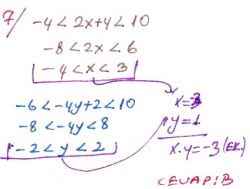 7/ -4 < 2x+4 < 10
-8 < 2x < 6
-4 < x < 3
-6 < -4y+2 < 10
-8 < -4y < 8
-2 < y < 2
x=-3
y=1
x.y=-3 (EK.)
CEVAP:B